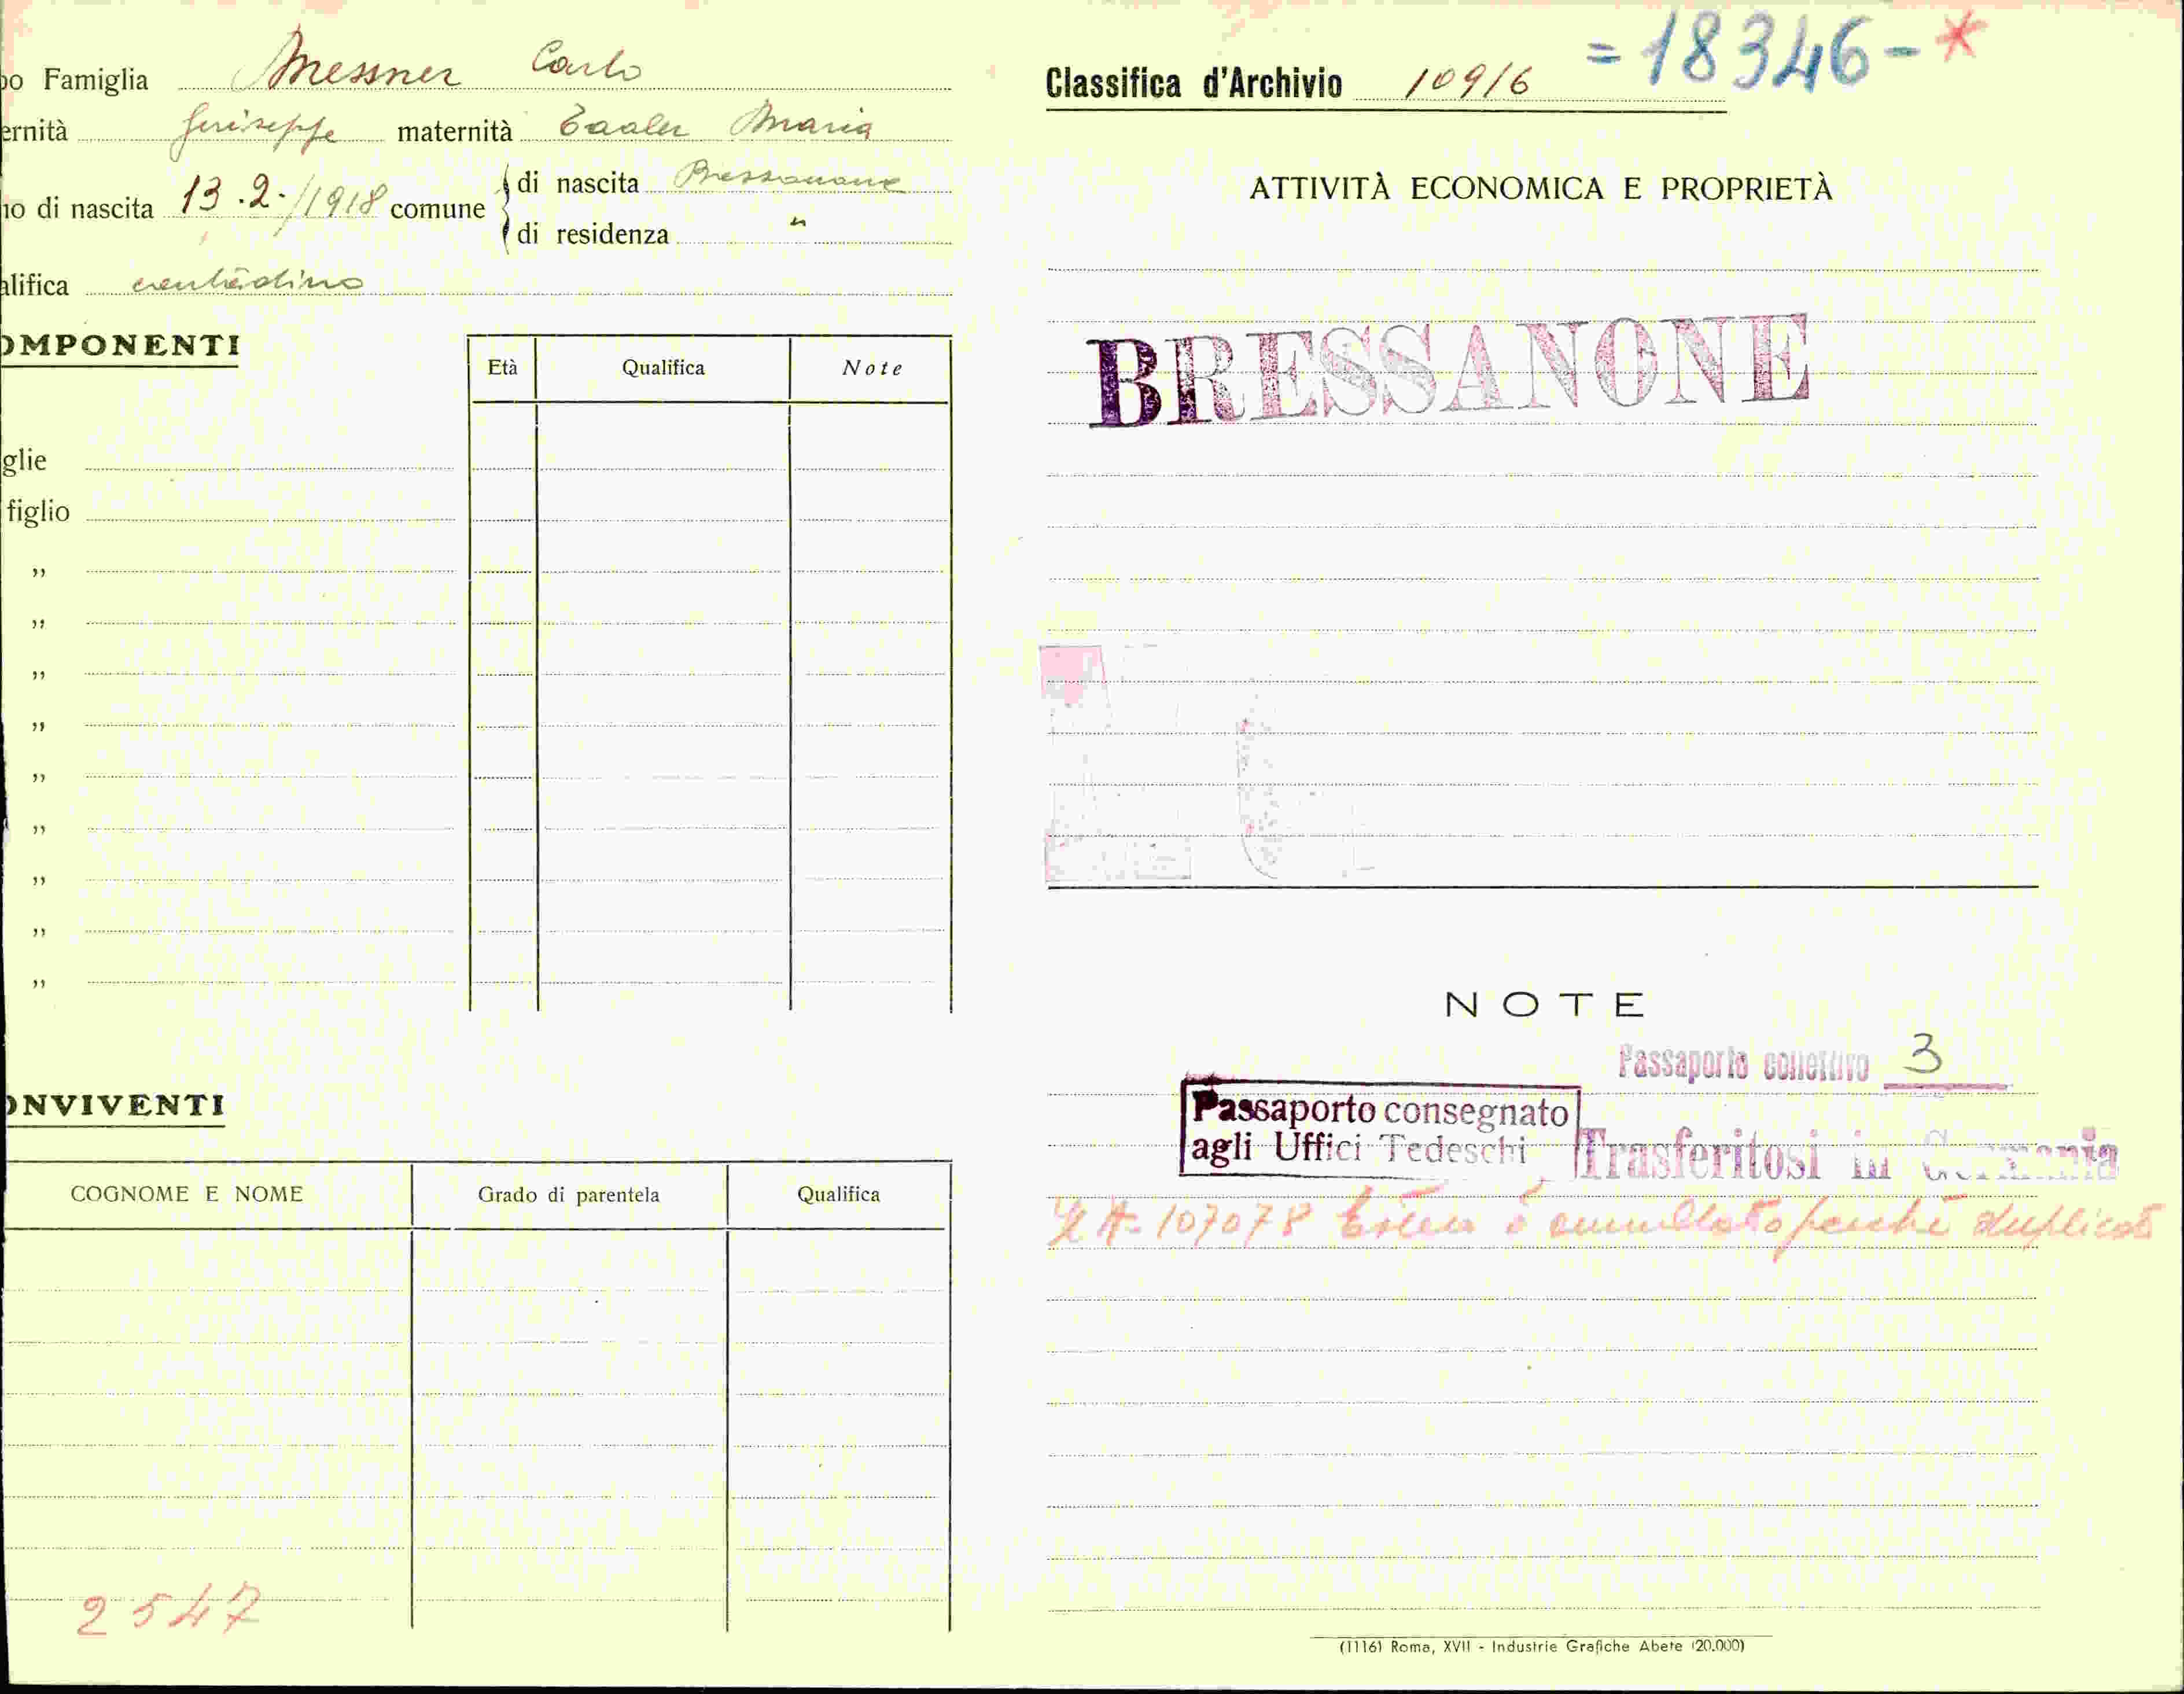 po Famiglia Messner Carlo
ernità Giuseppe maternità Maria
no di nascita 13.2./1918 comune
di nascita Bressanone
di residenza "
alifica contadino
OMPONENTI
Età Qualifica Note
glie
figlio
"
"
"
"
"
"
"
"
"
ONVIVENTI
COGNOME E NOME Grado di parentela Qualifica
2547
= 18346 - *
Classifica d'Archivio 109/6
ATTIVITÀ ECONOMICA E PROPRIETÀ
BRESSANONE
NOTE
Passaporto collettivo 3
Passaporto consegnato
agli Uffici Tedeschi
Trasferitosi in Germania
107078 è annullato perchè duplicato
(1116) Roma, XVII - Industrie Grafiche Abete (20.000)